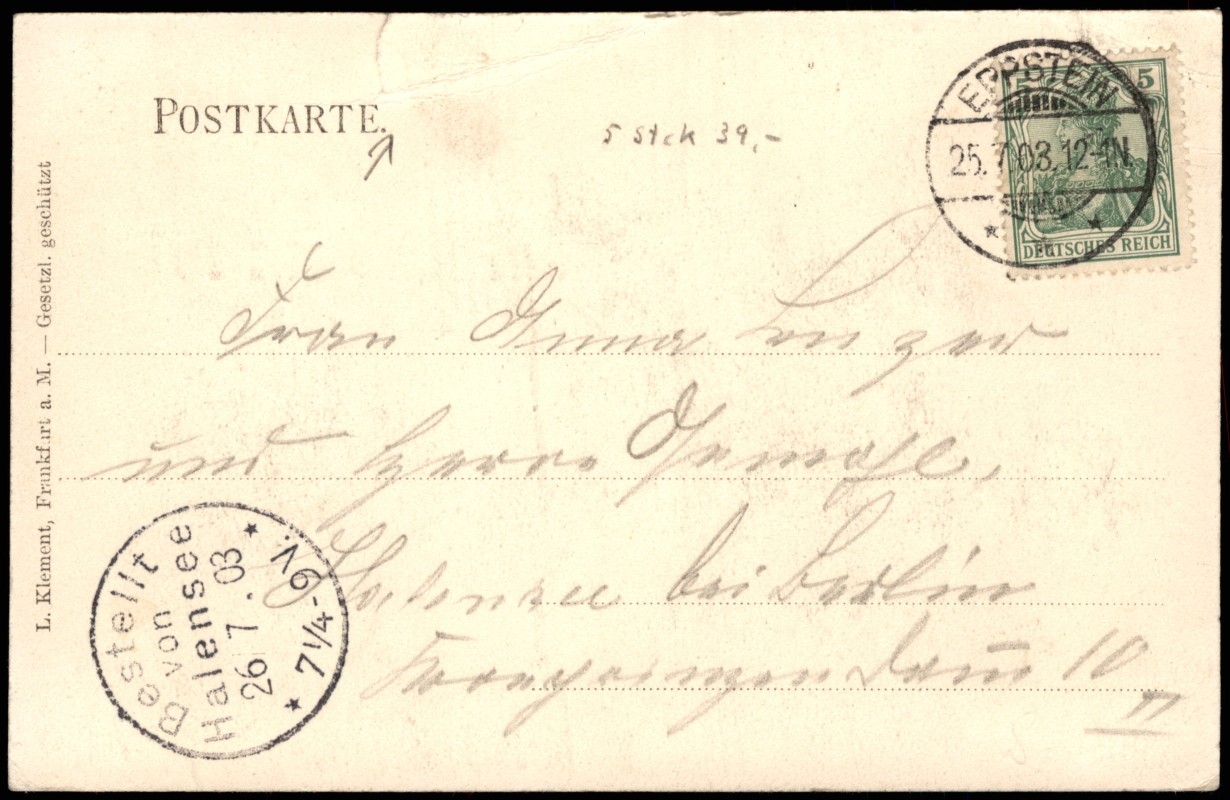 POSTKARTE.
5 Stck 39,-
EPPSTEIN
25.7.03.12-1N.
5
DEUTSCHES REICH
L. Klement, Frankfurt a. M. — Gesetzl. geschützt
Frau Anna
und Herrn Gemahl,
Halensee bei Berlin
Kronprinzen Damm 10
II
Bestellt
von
Halensee
26 7. 03
7 1/4-9V.